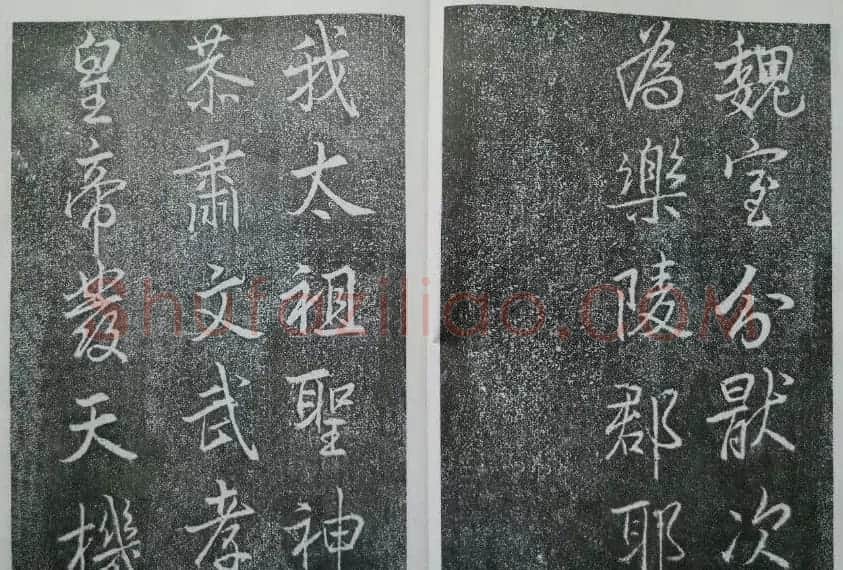 魏室分猒次
為樂陵郡耶
我太祖聖神
恭肅文武孝
皇帝發天機
Shufaziliao.COM